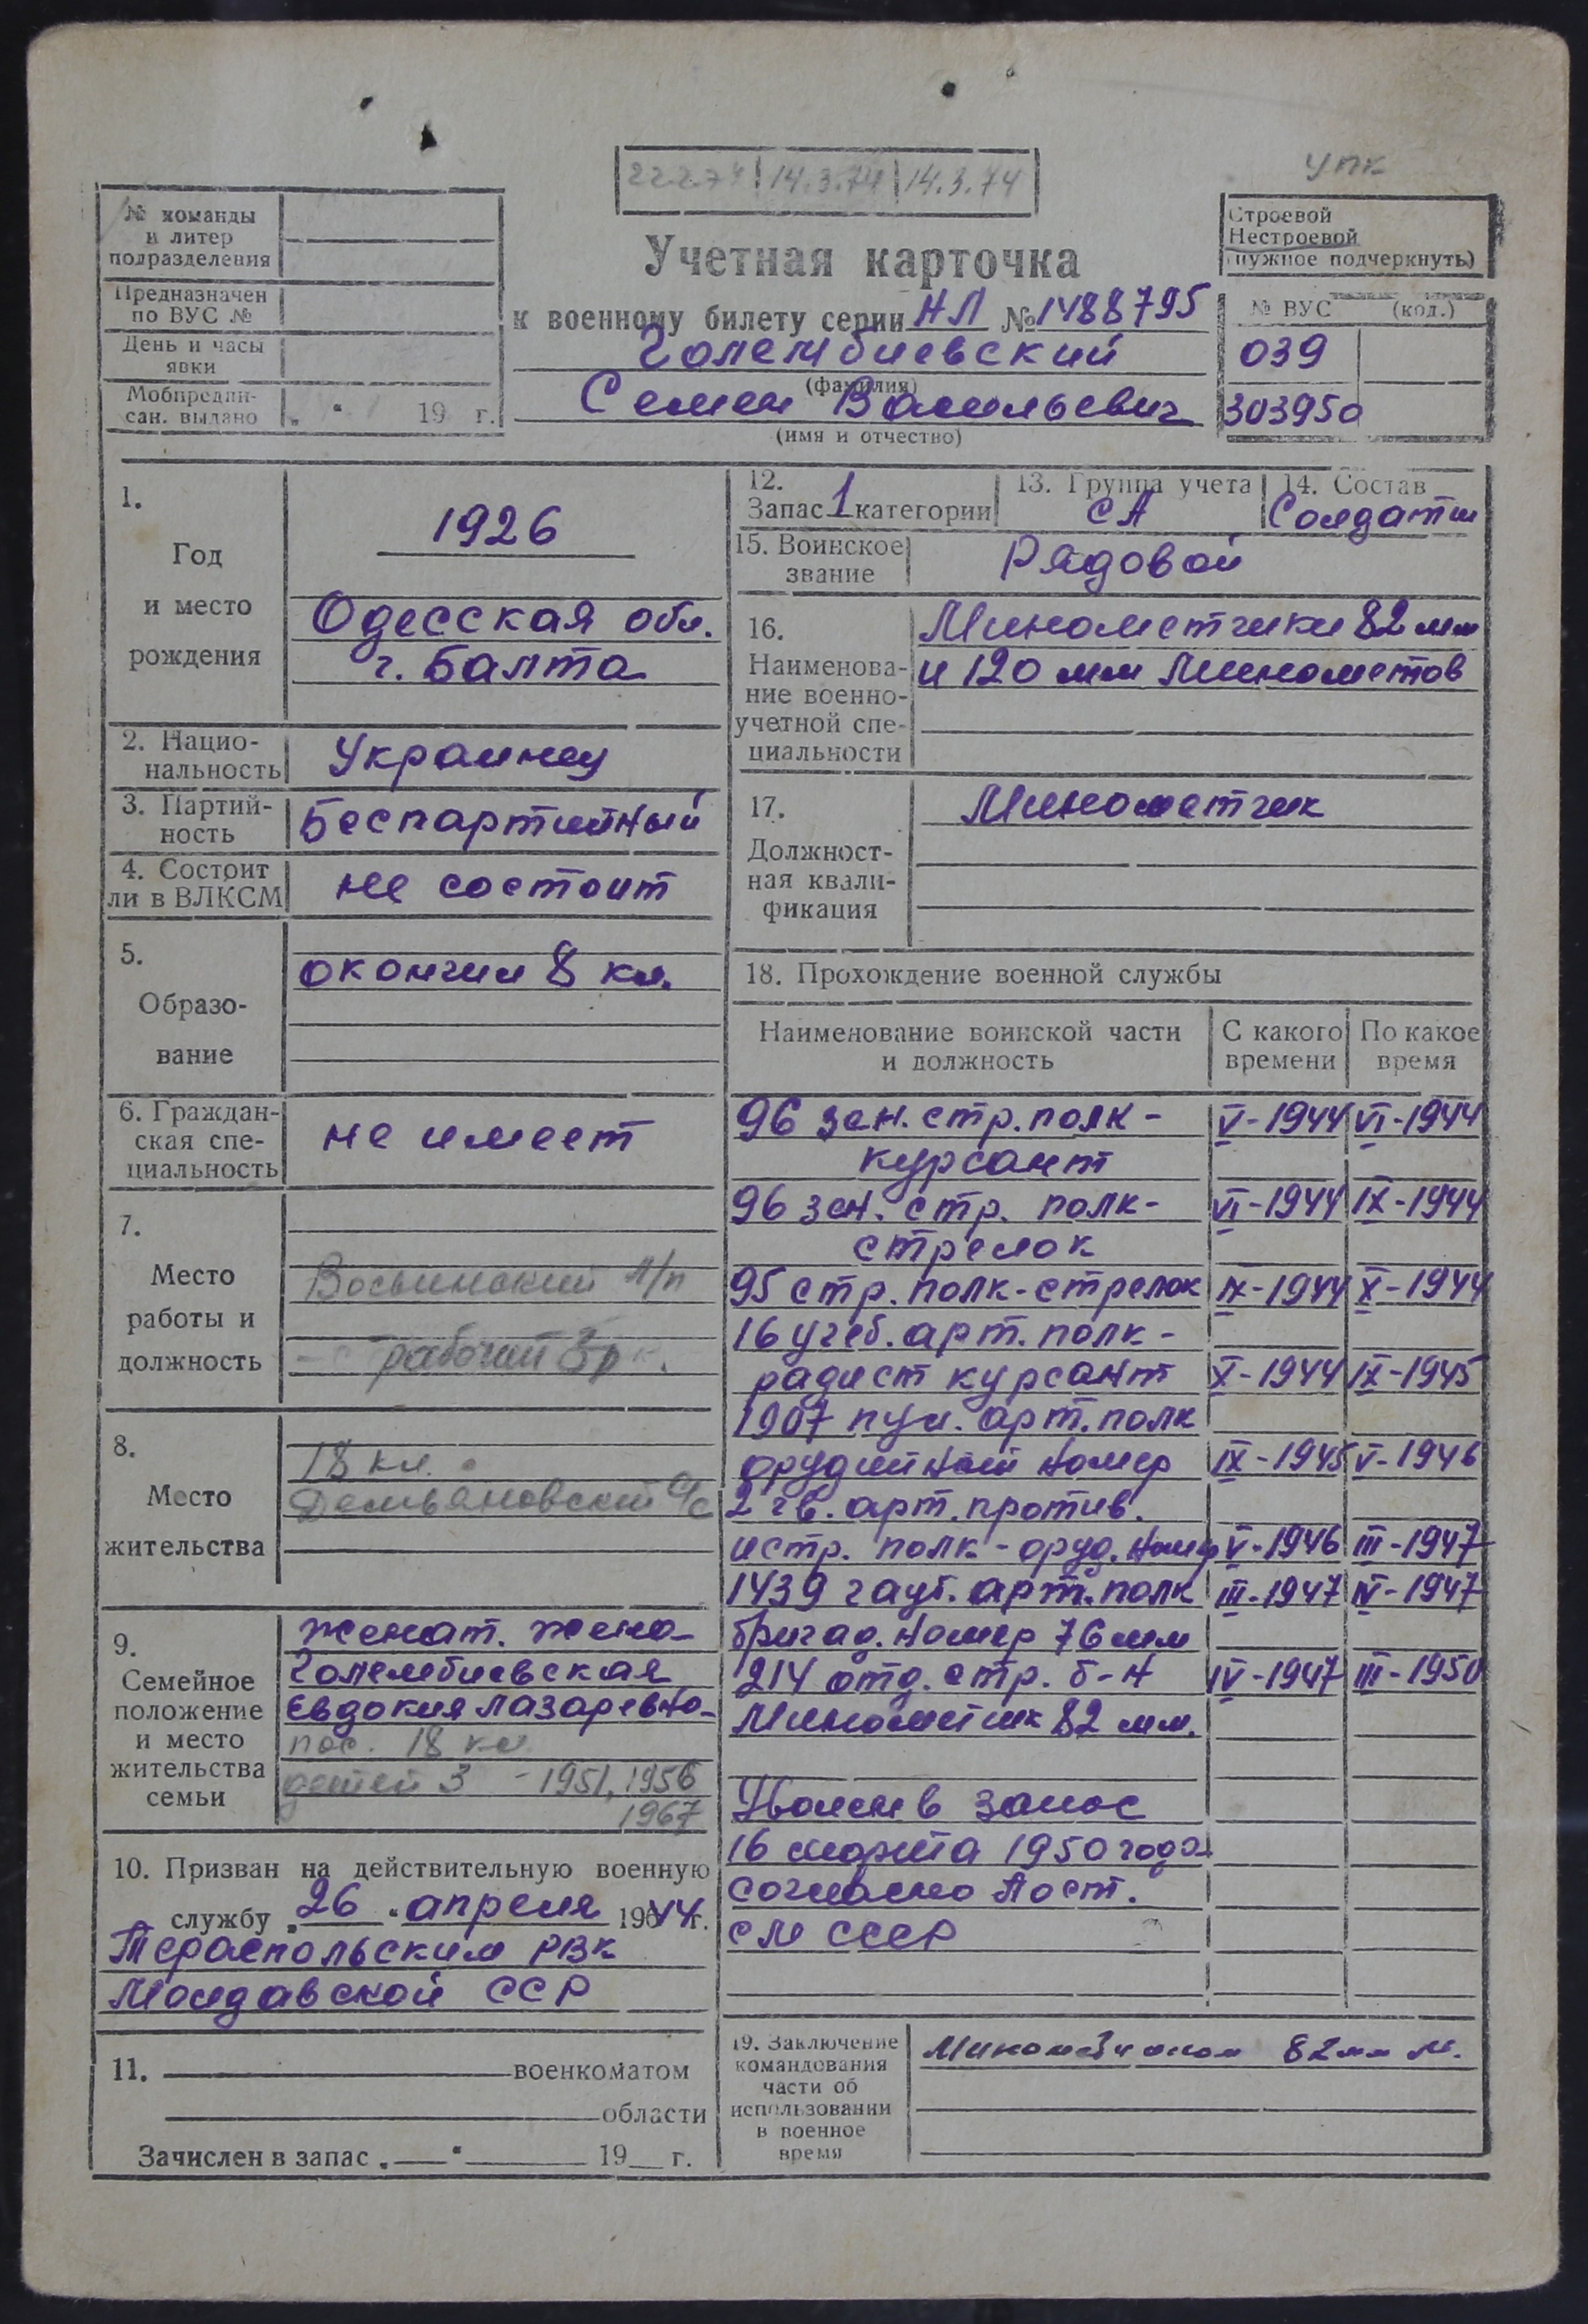 упк
22.2.74 14.3.74 14.3.74
№ команды
и литер
подразделения
Предназначен
по ВУС №
День и часы
явки
Мобпредпи-
сан. выдано „ “ 19 г.
Учетная карточка
к военному билету серии НЛ № 1488795
Голембиевский
(фамилия)
Семен Васильевич
(имя и отчество)
Строевой
Нестроевой
(нужное подчеркнуть)
№ ВУС (код.)
039
303950
1.
Год
и место
рождения
1926
Одесская обл.
г. Балта
2. Нацио-
нальность
Украинец
3. Партий-
ность
Беспартийный
4. Состоит
ли в ВЛКСМ
не состоит
5.
Образо-
вание
окончил 8 кл.
6. Граждан-
ская спе-
циальность
не имеет
7.
Место
работы и
должность
л/п
рабочий 3р
8.
Место
жительства
18 км.
Демьяновский с/с
9.
Семейное
положение
и место
жительства
семьи
женат. жена
Голембиевская
Евдокия Лазаревна
пос. 18 км
детей 3 - 1951, 1956
1967
10. Призван на действительную военную
службу „26“ апреля 1944 г.
Тераспольским РВК
Молдавской ССР
11. военкоматом
области
Зачислен в запас „ “ 19 г.
12.
Запас 1 категории
13. Группа учета
СА
14. Состав
Солдаты
15. Воинское
звание
Рядовой
16.
Наименова-
ние военно-
учетной спе-
циальности
Минометчики 82 мм
и 120 мм минометов
17.
Должност-
ная квали-
фикация
Минометчик
18. Прохождение военной службы
Наименование воинской части
и должность
С какого
времени
По какое
время
96 зен. стр. полк - V-1944 VI-1944
курсант
96 зен. стр. полк - VI-1944 IX-1944
стрелок
95 стр. полк - стрелок IX-1944 X-1944
16 учеб. арт. полк -
радист курсант X-1944 IX-1945
1907 пуш. арт. полк
орудийный номер IX-1945 V-1946
2 гв. арт. против.
истр. полк - оруд. номер V-1946 III-1947
1439 гауб. арт. полк III-1947 IV-1947
бригад. номер 76 мм
214 отд. стр. б-н IV-1947 III-1950
Минометчик 82 мм.
Уволен в запас
16 марта 1950 года
согласно Пост.
СМ СССР
19. Заключение
командования
части об
использовании
в военное
время
82 мм м.